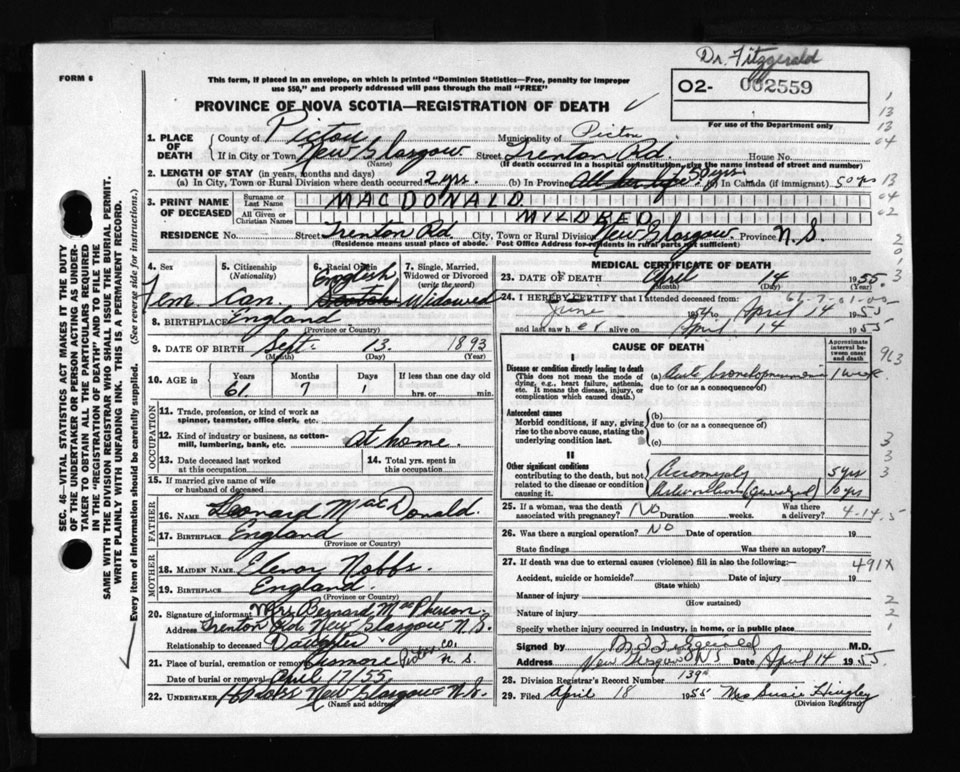 Dr. Fitzgerald
FORM 6
This form, if placed in an envelope, on which is printed "Dominion Statistics—Free, penalty for improper
use $50," and properly addressed will pass through the mail "FREE"
02- 002559
For use of the Department only
PROVINCE OF NOVA SCOTIA—REGISTRATION OF DEATH
1. PLACE OF DEATH
County of Pictou Municipality of Pictou
If in City or Town New Glasgow Street Trenton Rd. House No.
(Name) (If death occurred in a hospital or institution, give the name instead of street and number)
2. LENGTH OF STAY (in years, months and days)
(a) In City, Town or Rural Division where death occurred 2 yrs. (b) In Province All her life 50 yrs (c) In Canada (if immigrant) 50 yrs
3. PRINT NAME OF DECEASED
Surname or Last Name MACDONALD
All Given or Christian Names MYLDRED
RESIDENCE No. Street Trenton Rd. City, Town or Rural Division New Glasgow Province N.S.
(Residence means usual place of abode. Post Office Address for residents in rural parts not sufficient)
4. Sex Fem.
5. Citizenship (Nationality) Can.
6. Racial Origin English Scotch
7. Single, Married, Widowed or Divorced (write the word) Widowed
8. BIRTHPLACE England
(Province or Country)
9. DATE OF BIRTH Sept. 13. 1893
(Month) (Day) (Year)
10. AGE in Years Months Days If less than one day old
61. 7 1 hrs. or min.
OCCUPATION
11. Trade, profession, or kind of work as
spinner, teamster, office clerk, etc.
12. Kind of industry or business, as cotton-
mill, lumbering, bank, etc. at home.
13. Date deceased last worked
at this occupation
14. Total yrs. spent in
this occupation
15. If married give name of wife
or husband of deceased
FATHER
16. Name Leonard MacDonald.
17. Birthplace England
(Province or Country)
MOTHER
18. MAIDEN NAME. Elenor Nobbs.
19. BIRTHPLACE England.
(Province or Country)
20. Signature of informant Mrs. Bernard MacPherson.
Address Trenton Rd. New Glasgow N.S.
Relationship to deceased Daughter
21. Place of burial, cremation or removal Lismore Pictou Co. N.S.
Date of burial or removal April 17/55.
22. UNDERTAKER New Glasgow N.S.
(Name and address)
MEDICAL CERTIFICATE OF DEATH
23. DATE OF DEATH April 14 1955.
(Month) (Day) (Year)
61-7-01-00
24. I HEREBY CERTIFY that I attended deceased from:
June 1954 to April 14 1955
and last saw her alive on April 14 1955
CAUSE OF DEATH
Approximate interval between onset and death
I
Disease or condition directly leading to death
(This does not mean the mode of dying, e.g., heart failure, asthenia, etc. It means the disease, injury, or complication which caused death.)
(a) Acute bronchopneumonia 1 week
due to (or as a consequence of)
Antecedent causes
Morbid conditions, if any, giving rise to the above cause, stating the underlying condition last.
(b)
due to (or as a consequence of)
(c)
II
Other significant conditions
contributing to the death, but not related to the disease or condition causing it.
Acromegaly 5 yrs
(generalized) 10 yrs
25. If a woman, was the death
associated with pregnancy? No Duration weeks. Was there a delivery?
4-14.5
26. Was there a surgical operation? No Date of operation 19
State findings Was there an autopsy?
27. If death was due to external causes (violence) fill in also the following:—
491X
Accident, suicide or homicide? Date of injury 19
(State which)
Manner of injury
(How sustained)
Nature of injury
Specify whether injury occurred in industry, in home, or in public place
Signed by Fitzgerald M.D.
Address New Glasgow NS Date April 14 1955
28. Division Registrar's Record Number 139
29. Filed April 18 1955 Mrs Susie Hingley
(Division Registrar)
SEC. 46—VITAL STATISTICS ACT MAKES IT THE DUTY
OF THE UNDERTAKER OR PERSON ACTING AS UNDER-
TAKER TO OBTAIN ALL THE PARTICULARS REQUIRED
IN THE "REGISTRATION OF DEATH" AND TO FILE THE
SAME WITH THE DIVISION REGISTRAR WHO SHALL ISSUE THE BURIAL PERMIT.
WRITE PLAINLY WITH UNFADING INK. THIS IS A PERMANENT RECORD.
Every item of information should be carefully supplied. (See reverse side for instructions.)
1
13
13
04
13
04
02
2
0
1
3
963
3
3
3
2
2
1